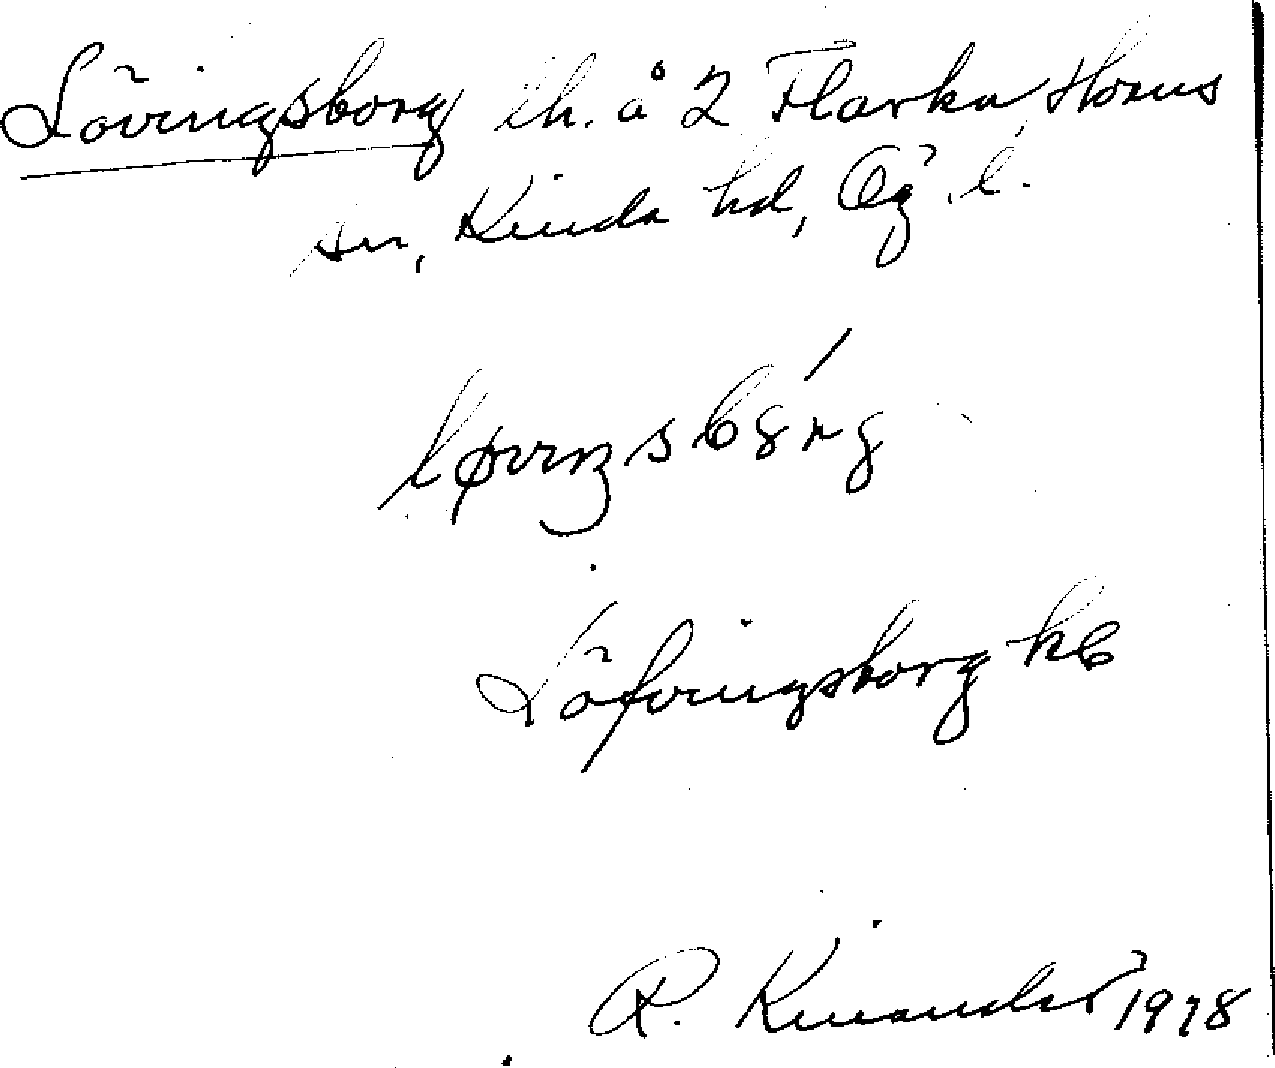 Lövingsborg lh. å 2 Flarka, Horns
sn, Kinda hd, Ög. l.
Löfvingsborg kb
R. Kinander 1928